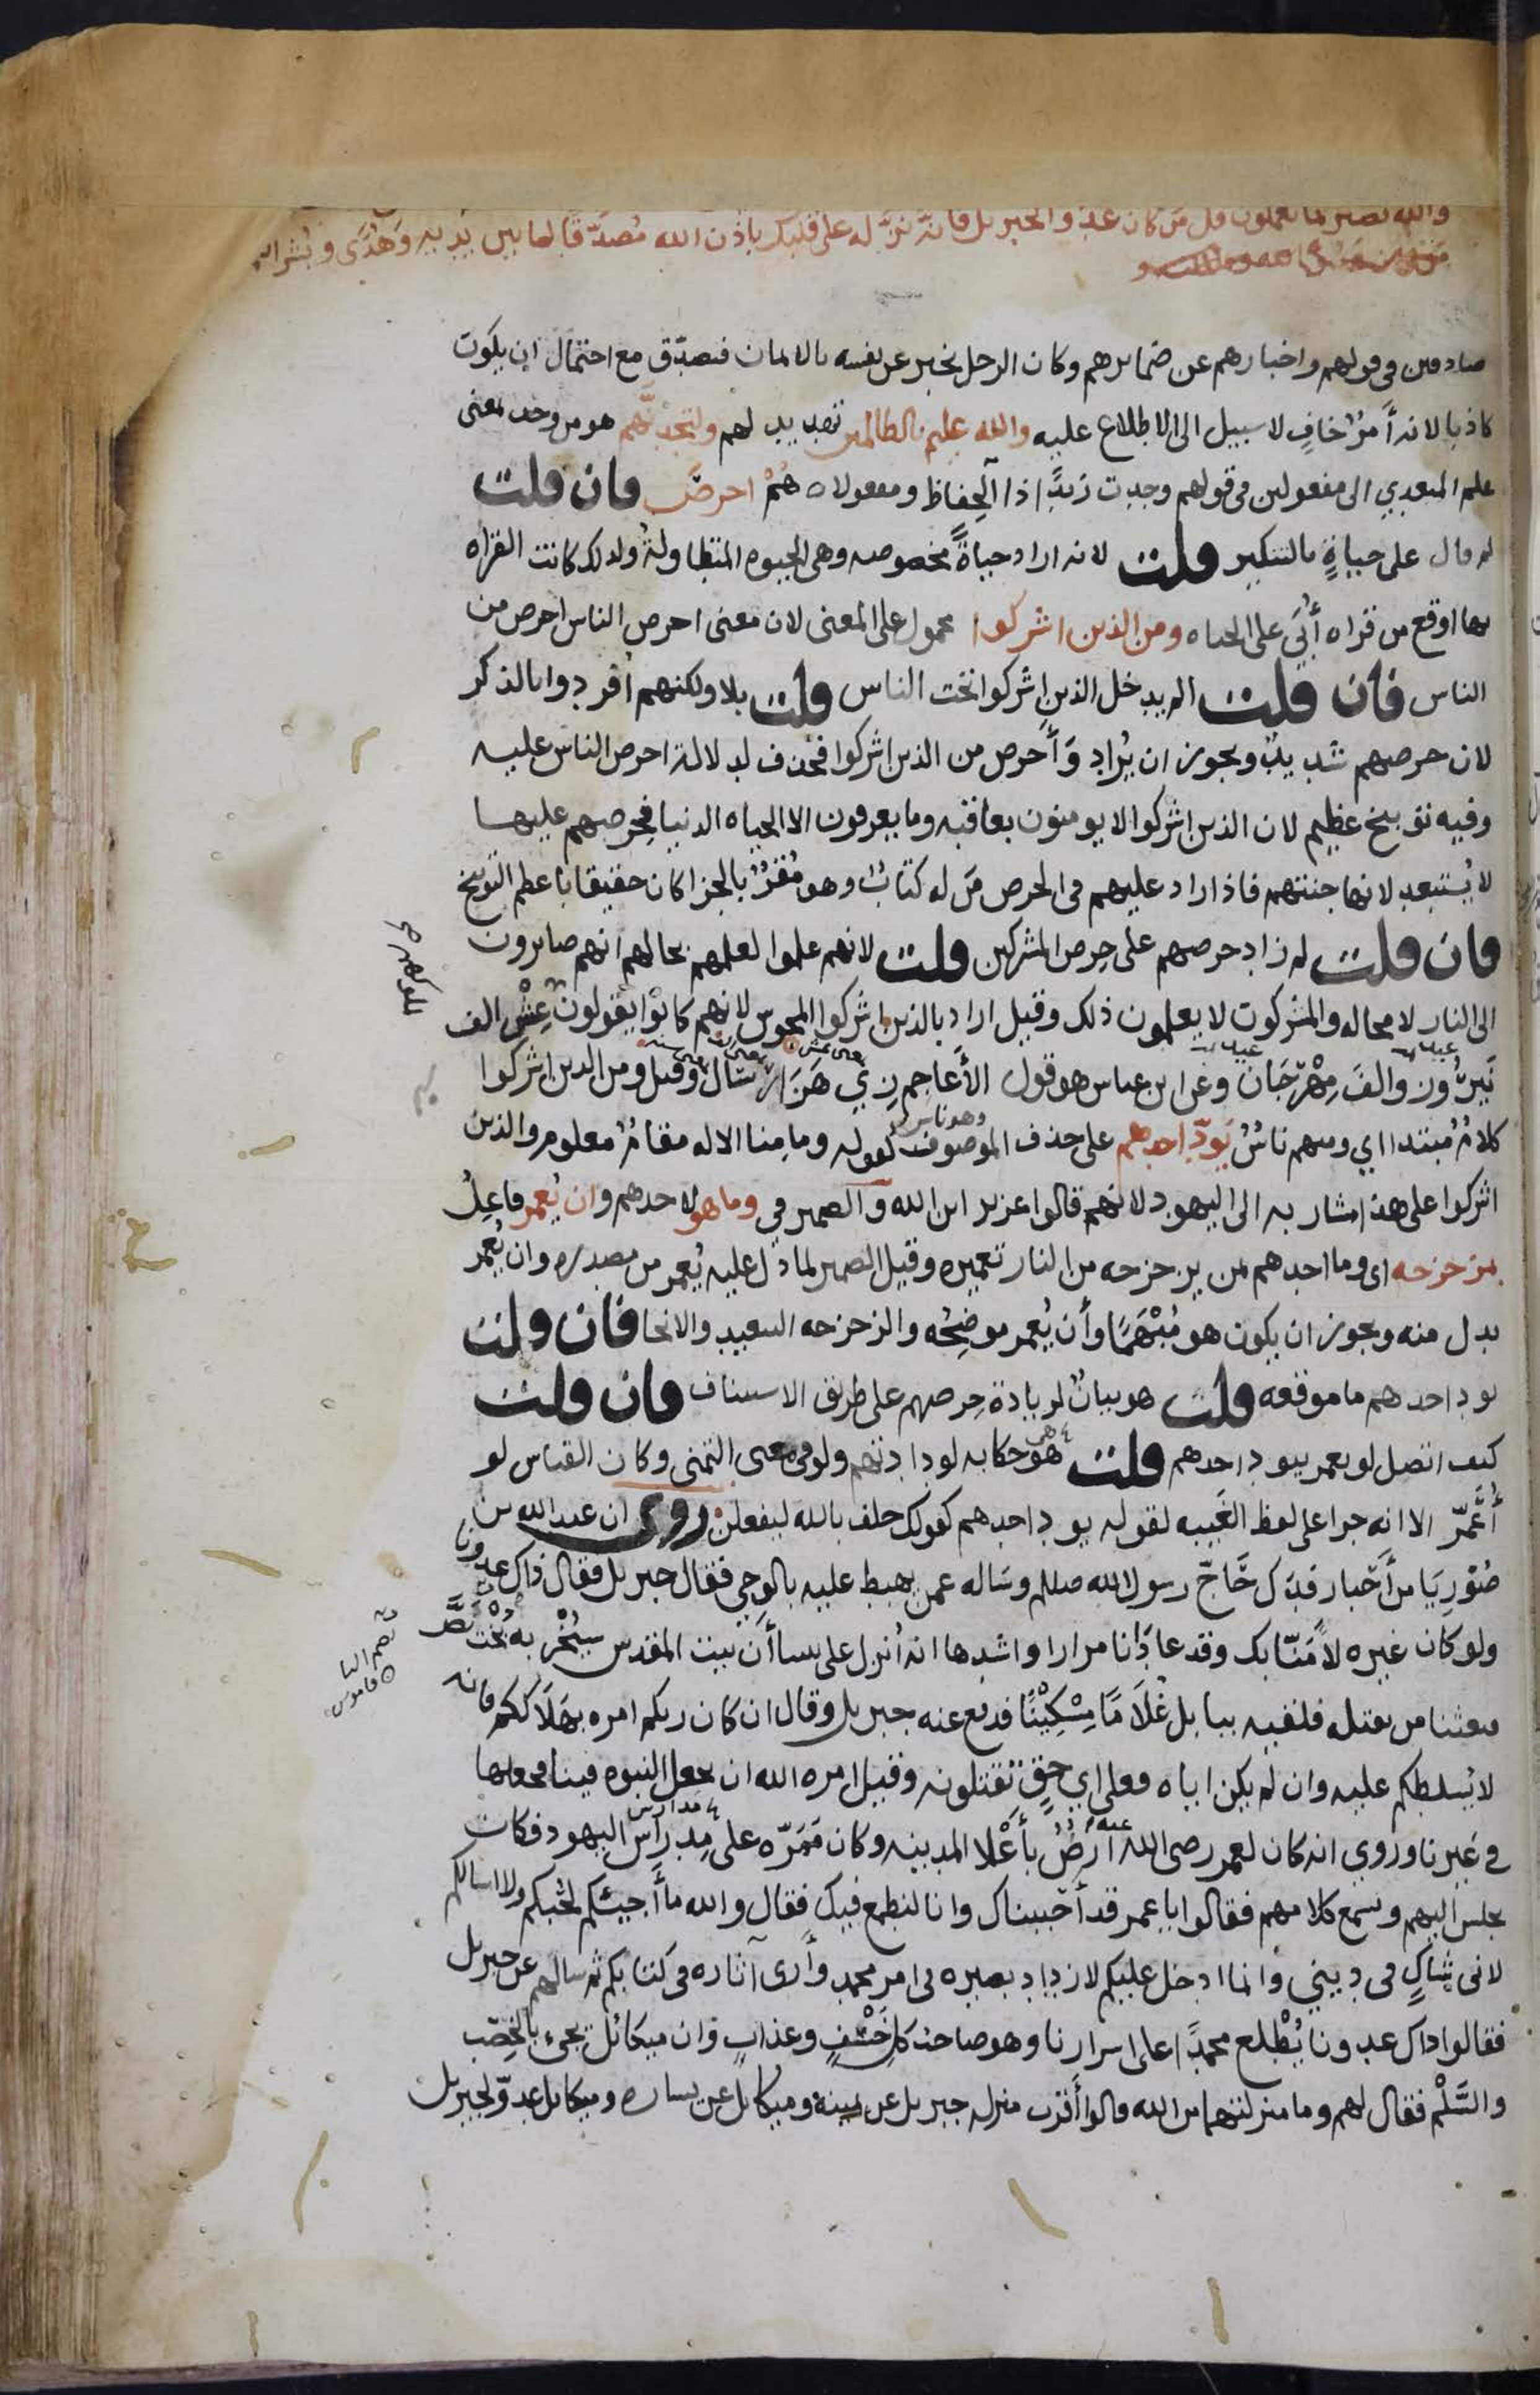 والله بصير بما يعملون قل من كان عدوا لجبريل فانه نزله على قلبك باذن الله مصدقا لما بين يديه وهدى وبشرا
صادقين في قولهم واخبارهم عن ضمايرهم وكان الرجل يخبر عن نفسه بالايمان فيصدّق مع احتمال ان يكون
كاذبا لانه أمرٌ خافٍ لا سبيل الى الاطلاع عليه والله عليم بالظالمين تهديد لهم ولتجدنّهم هو من وجد بمعنى
علم المتعدي الى مفعولين في قولهم وجدت زيدًا ذا الحِفاظ ومفعولاه هُمْ احرصَ فان قلت
لم قال على حياةٍ بالتنكير قلت لانه اراد حياةً مخصوصه وهي الحيوه المتطاولة ولذلك كانت القراه
بها اوقع من قراه أُبَي على الحياه ومن الذين اشركوا محمول على المعنى لان معنى احرص الناس احرص من
الناس فان قلت الم يدخل الذين اشركوا تحت الناس قلت بلا ولكنهم أفردوا بالذكر
لان حرصهم شديدٌ ويجوز ان يُراد وَأحرص من الذين اشركوا فحذف لدلالة احرص الناس عليه
وفيه توبيخ عظيم لان الذين اشركوا لا يومنون بعاقبه وما يعرفون الا الحياه الدنيا فحِرصهم عليها
لا يُستبعد لانها جنتهم فاذا زاد عليهم في الحرص مَن له كتابٌ وهو مُقرٌّ بالجزا كان حقيقا باعظم التوبيخ
فان قلت لم زاد حرصهم على حِرص المشركين قلت لانهم علموا لعلمهم بحالهم انهم صايرون
الى النار لا محاله والمشركون لا يعلمون ذلك وقيل اراد بالذين اشركوا المجوس لانهم كانوا يقولون عِشْ الف
نَيرُوز والفَ مِهْرَجَان وعن ابن عباس هو قول الأعاجم زِي هَزَار سَال وقيل ومن الذين اشركوا
كلامٌ مُبتدا اي ومنهم ناسٌ يَوَدّ احدهم على حذف الموصوف كقوله وما مِنا الا له مقامٌ معلوم والذين
وهو ناس
اشركوا على هذا مشار به الى اليهود لانهم قالوا عزير ابن الله والضمير في وما هو لاحدهم وان يُعمر فاعِلُ
بمزحزحه اي وما احدهم من يزحزحه من النار تعميره وقيل الضمير لما دل عليه يُعمر من مصدره وان يُعمر
بدل منه ويجوز ان يكون هو مُبْهَمًا وأن يُعمر موضِحُه والزحزحه التبعيد والانحا فان قلت
يود احدهم ما موقعه قلت هو بيانٌ لزيادة حِرصهم على طريق الاستيناف فان قلت
كيف اتصل لو يعمر بيود احدهم قلت هو حكايه لودادتهم ولو في معنى التمني وكان القياس لو
أُعَمَّر الا انه جرا على لفظ الغَيبه لقوله يود احدهم كقولك حلف بالله ليفعلن روى ان عبد الله بن
صُوْرِيَا من أَحْبار فَدَك حَاجّ رسول الله صلم وساله عمن يهبط عليه بالوحي فقال جبريل فقال ذاك عدونا
ولو كان غيره لأمَنّا بك وقد عادَانا مرارا واشدها انه أنزل على نبينا أن بيت المقدس سيُخْرِبه بُخْت نَصَّر
فبعثنا من يقتله فلقيه ببابل غُلَامًا مِسْكِيْنًا فدفع عنه جبريل وقال ان كان ربكم امره بهَلَاككم فانه
لا يُسلطكم عليه وان لم يكن اياه فعلى اي حقٍ تقتلونه وقيل امره الله ان يجعل النبوه فينا فجعلها
في غيرنا وروي انه كان لعمر رضي الله عنه ارضٌ بأعْلا المدينه وكان مَمَرّه على مِدراس اليهود فكان
مدارس
يجلس اليهم ويسمع كلامهم فقالوا يا عمر قد أحببناك وانا لنطمع فيك فقال والله ما أجيئكم لحُبكم ولا اسالكم
لاني شاكٍ في ديني وانما ادخل عليكم لازداد بصيره في امر محمد وأرى آثاره في كتابكم ثم سالهم عن جبريل
فقالوا ذاك عدونا يُطْلع محمدًا على اسرارنا وهو صاحب كل خَسْفٍ وعذابٍ وان ميكائل يجيء بالخِصْب
والسَّلْم فقال لهم وما منزلتهما من الله قالوا أقرب منزله جبريل عن يمينه وميكايل عن يساره وميكايل عدوّ لجبريل
قاموس